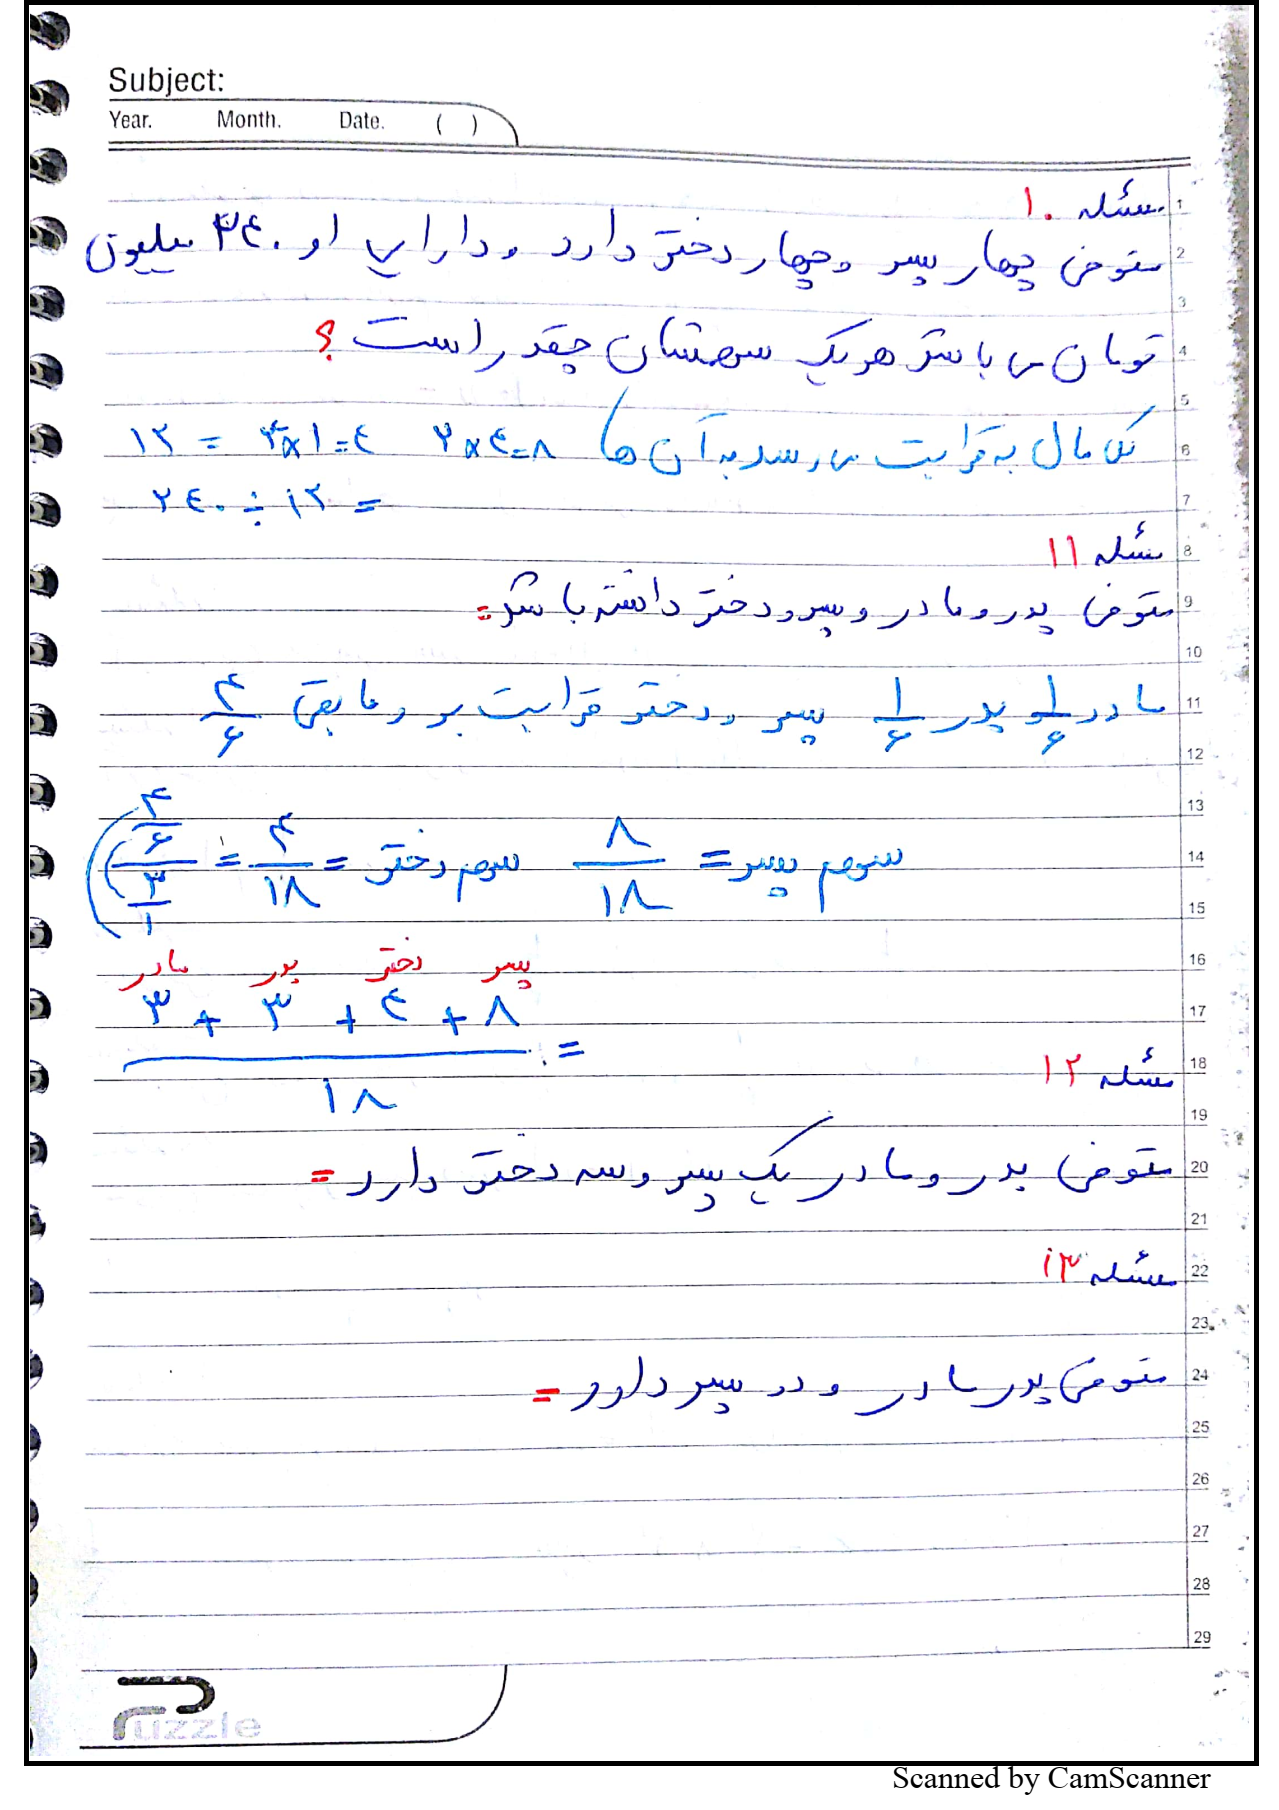 Subject:
Year. Month. Date. ( )
مسئله ۱۰
متوفی چهار پسر و چهار دختر دارد و دارایی او ۲۴۰ میلیون
تومان می باشد هر یک سهمشان چقدر است؟
کل مال به قرابت می رسد به آن ها) ۲×۴=۸ ۴×۱=۴ = ۱۲
۲۴۰ ÷ ۱۲ =
مسئله ۱۱
متوفی پدر و مادر و پسر و دختر داشته باشد =
مادر ۱/۶ و پدر ۱/۶ پسر و دختر قرابت بر و مابقی ۴/۶
سهم پسر = ۸/۱۸ سهم دختر = ۴/۱۸ = (۴/۶)/(۳/۱)
پسر دختر پدر مادر
۳ + ۳ + ۴ + ۸
=
۱۸
مسئله ۱۲
متوفی پدر و مادر یک پسر و سه دختر دارد =
مسئله ۱۳
متوفی پدر مادر و دو پسر دارد =
1
2
3
4
5
6
7
8
9
10
11
12
13
14
15
16
17
18
19
20
21
22
23
24
25
26
27
28
29
Puzzle
Scanned by CamScanner